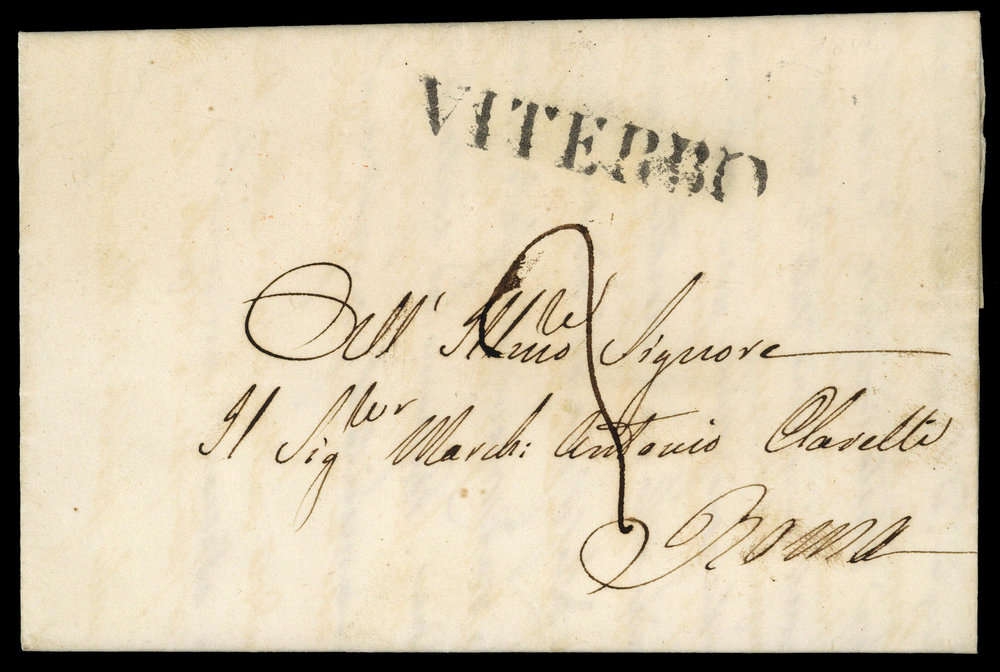 VITERBO
All' Illmo Signore
Il Sigr March: Antonio Clavelli
Roma